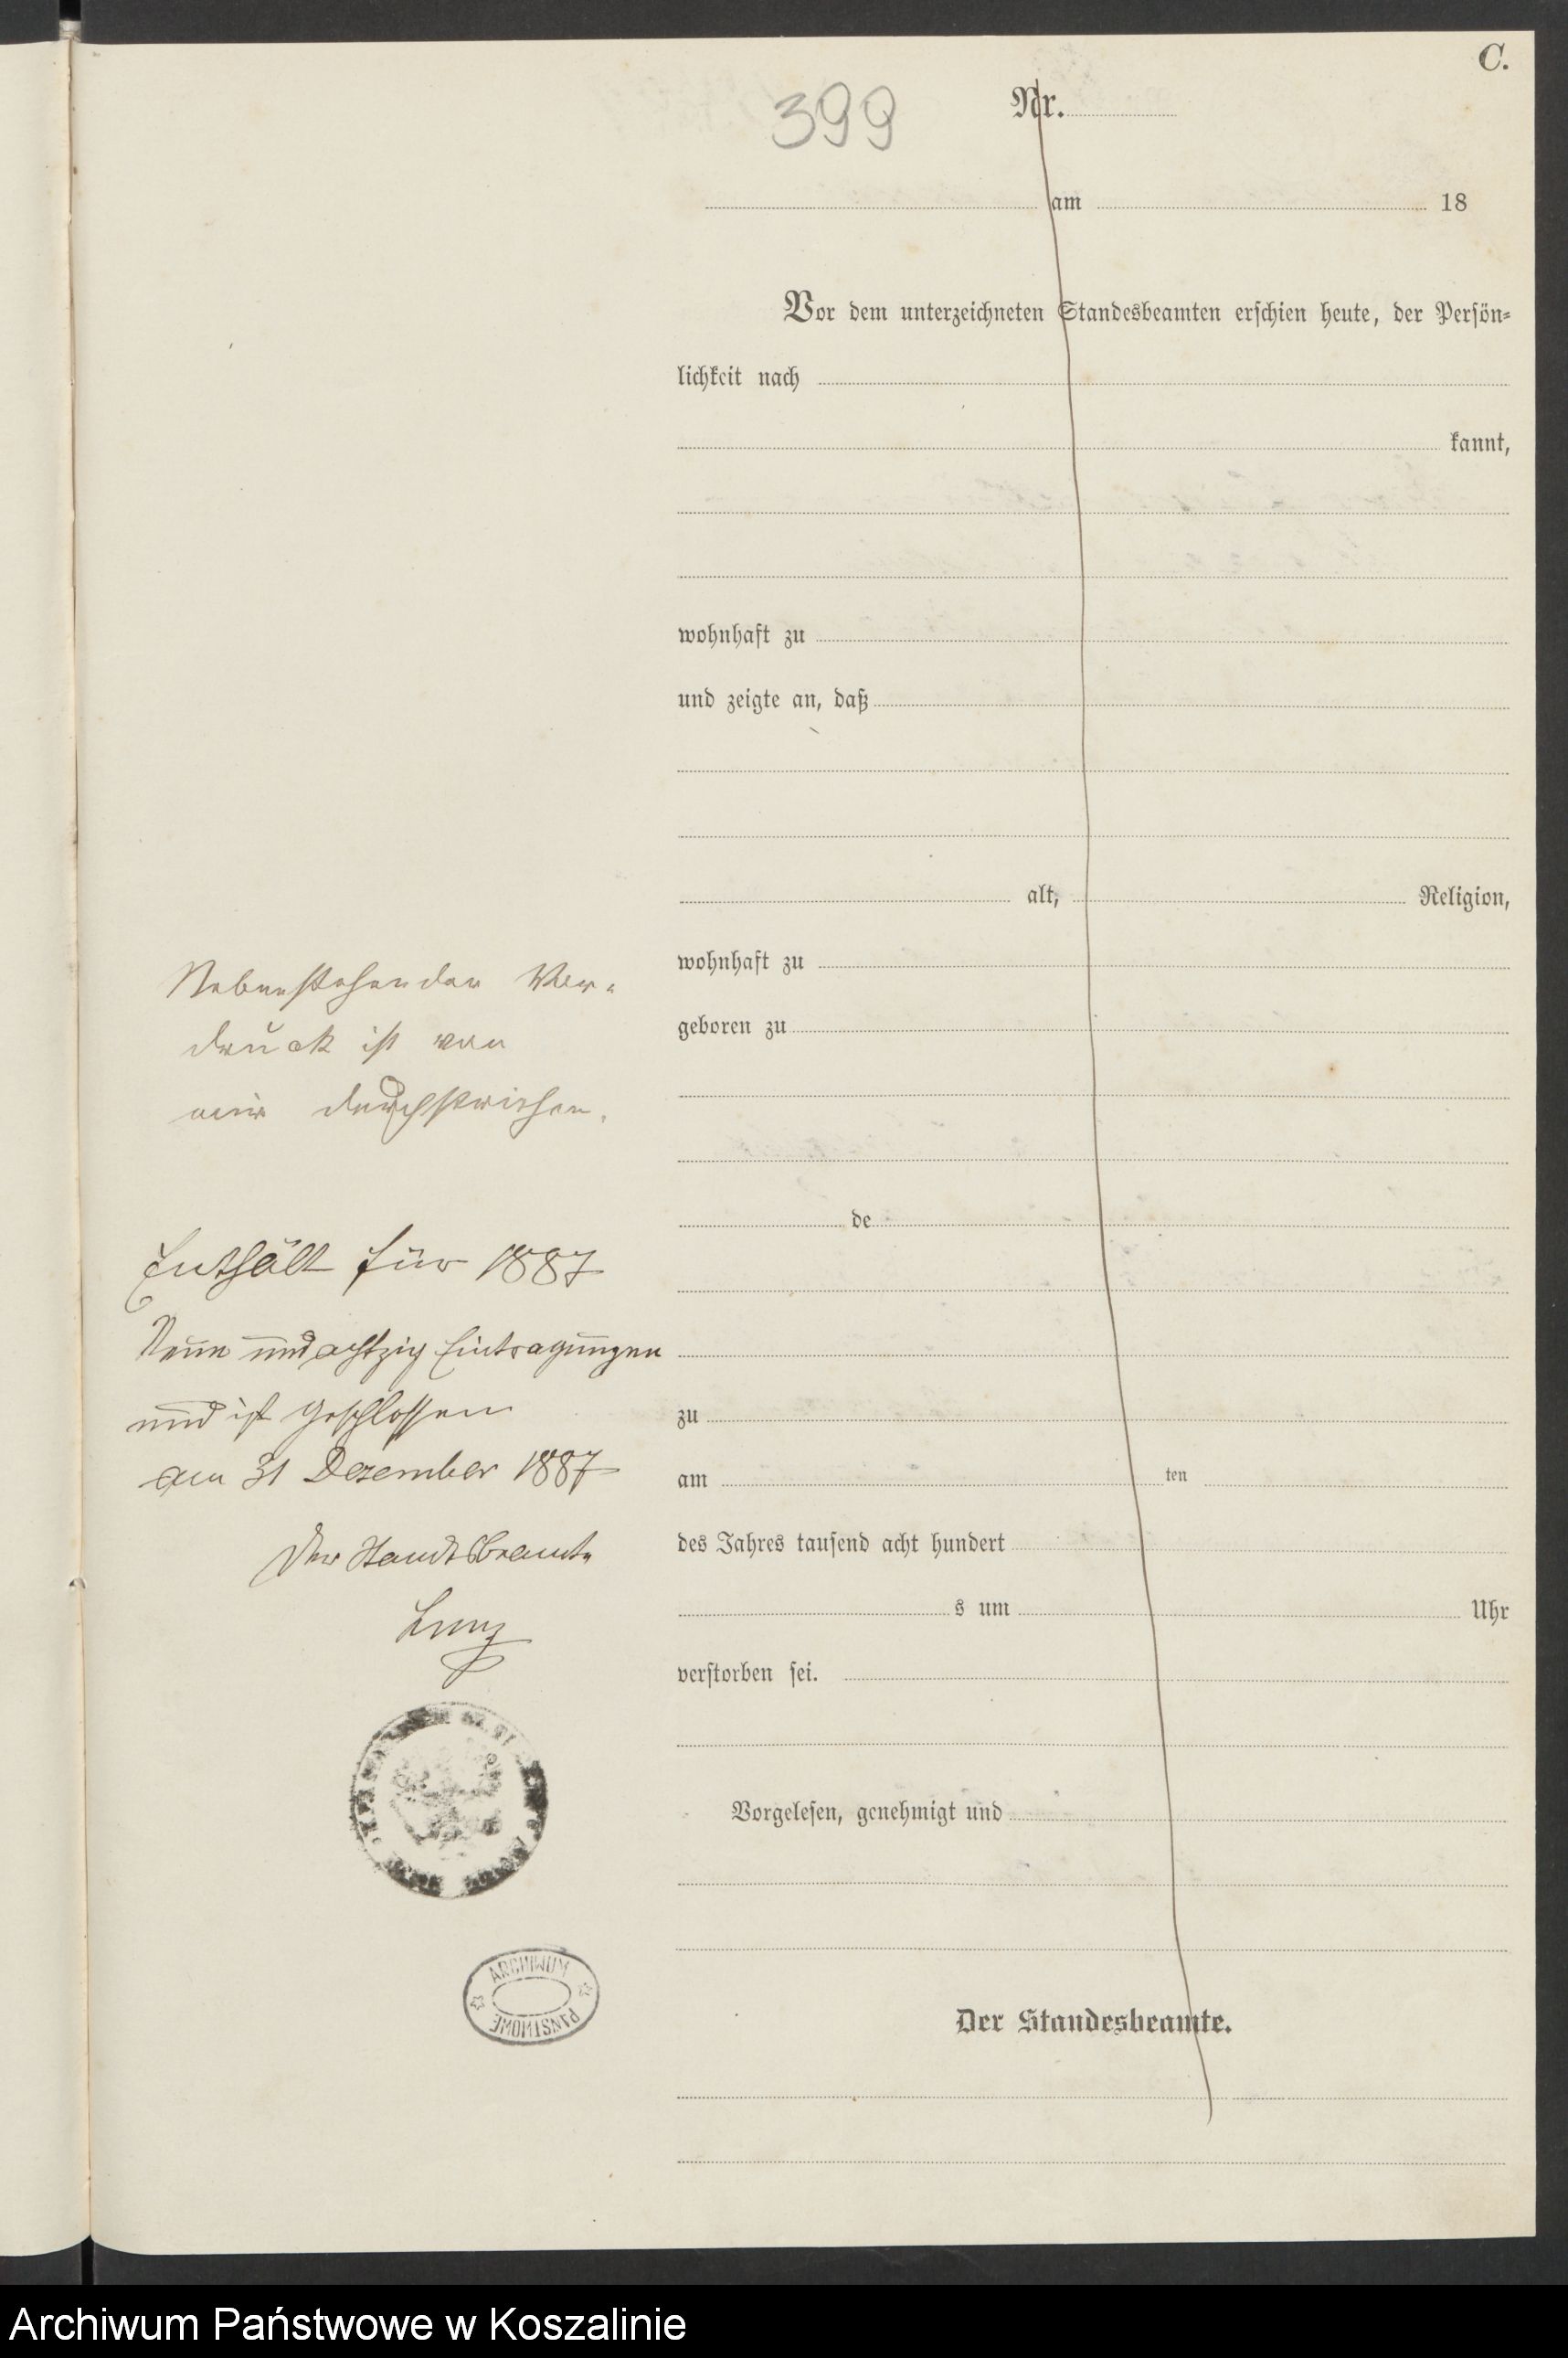 C.
399 Nr.
am 18
Vor dem unterzeichneten Standesbeamten erschien heute, der Persön-
lichkeit nach
kannt,
wohnhaft zu
und zeigte an, daß
alt, Religion,
wohnhaft zu
geboren zu
de
zu
am ten
des Jahres tausend acht hundert
s um Uhr
verstorben sei.
Vorgelesen, genehmigt und
Der Standesbeamte.
Nebenstehender Vor-
druck ist von
mir durchstrichen.
Enthält für 1887
Neun und achtzig Eintragungen
und ist geschlossen
am 31 Dezember 1887
Der Standesbeamte
ARCHIWUM
PAŃSTWOWE
Archiwum Państwowe w Koszalinie